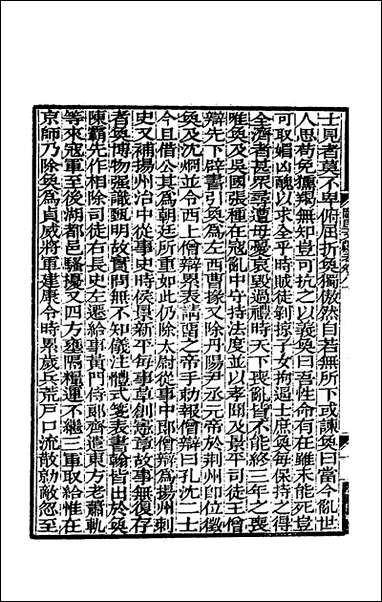 士見者莫不卑俯屈折奐獨傲然自若無所下或諫奐曰當今亂世
人思苟免獯羯無知豈可抗之以義奐曰吾性命有在雖未能死豈
可取媚凶醜以求全乎時賊徒剝掠子女拘逼士庶奐每保持之得
全濟者甚眾尋遭母憂哀毀過禮時天下喪亂皆不能終三年之喪
唯奐及吳國張種在寇亂中守持法度並以孝聞及景平司徒王僧
辯先下辟書引奐為左西曹掾又除丹陽尹丞元帝於荊州即位徵
奐及沈炯並令西上僧辯累表請留之帝手勅報僧辯曰孔沈二士
今且借公其為朝廷所重如此仍除太尉從事中郎僧辯為揚州刺
史又補揚州治中從事史時侯景新平每事草創憲章故事無復存
者奐博物強識甄明故實問無不知儀注體式箋表書翰皆出於奐
陳霸先作相除司徒右長史遷給事黃門侍郎齊遣東方老蕭軌
等來寇軍至後湖都邑騷擾又四方壅隔糧運不繼三軍取給惟在
京師乃除奐為貞威將軍建康令時累歲兵荒戶口流散勍敵忽至